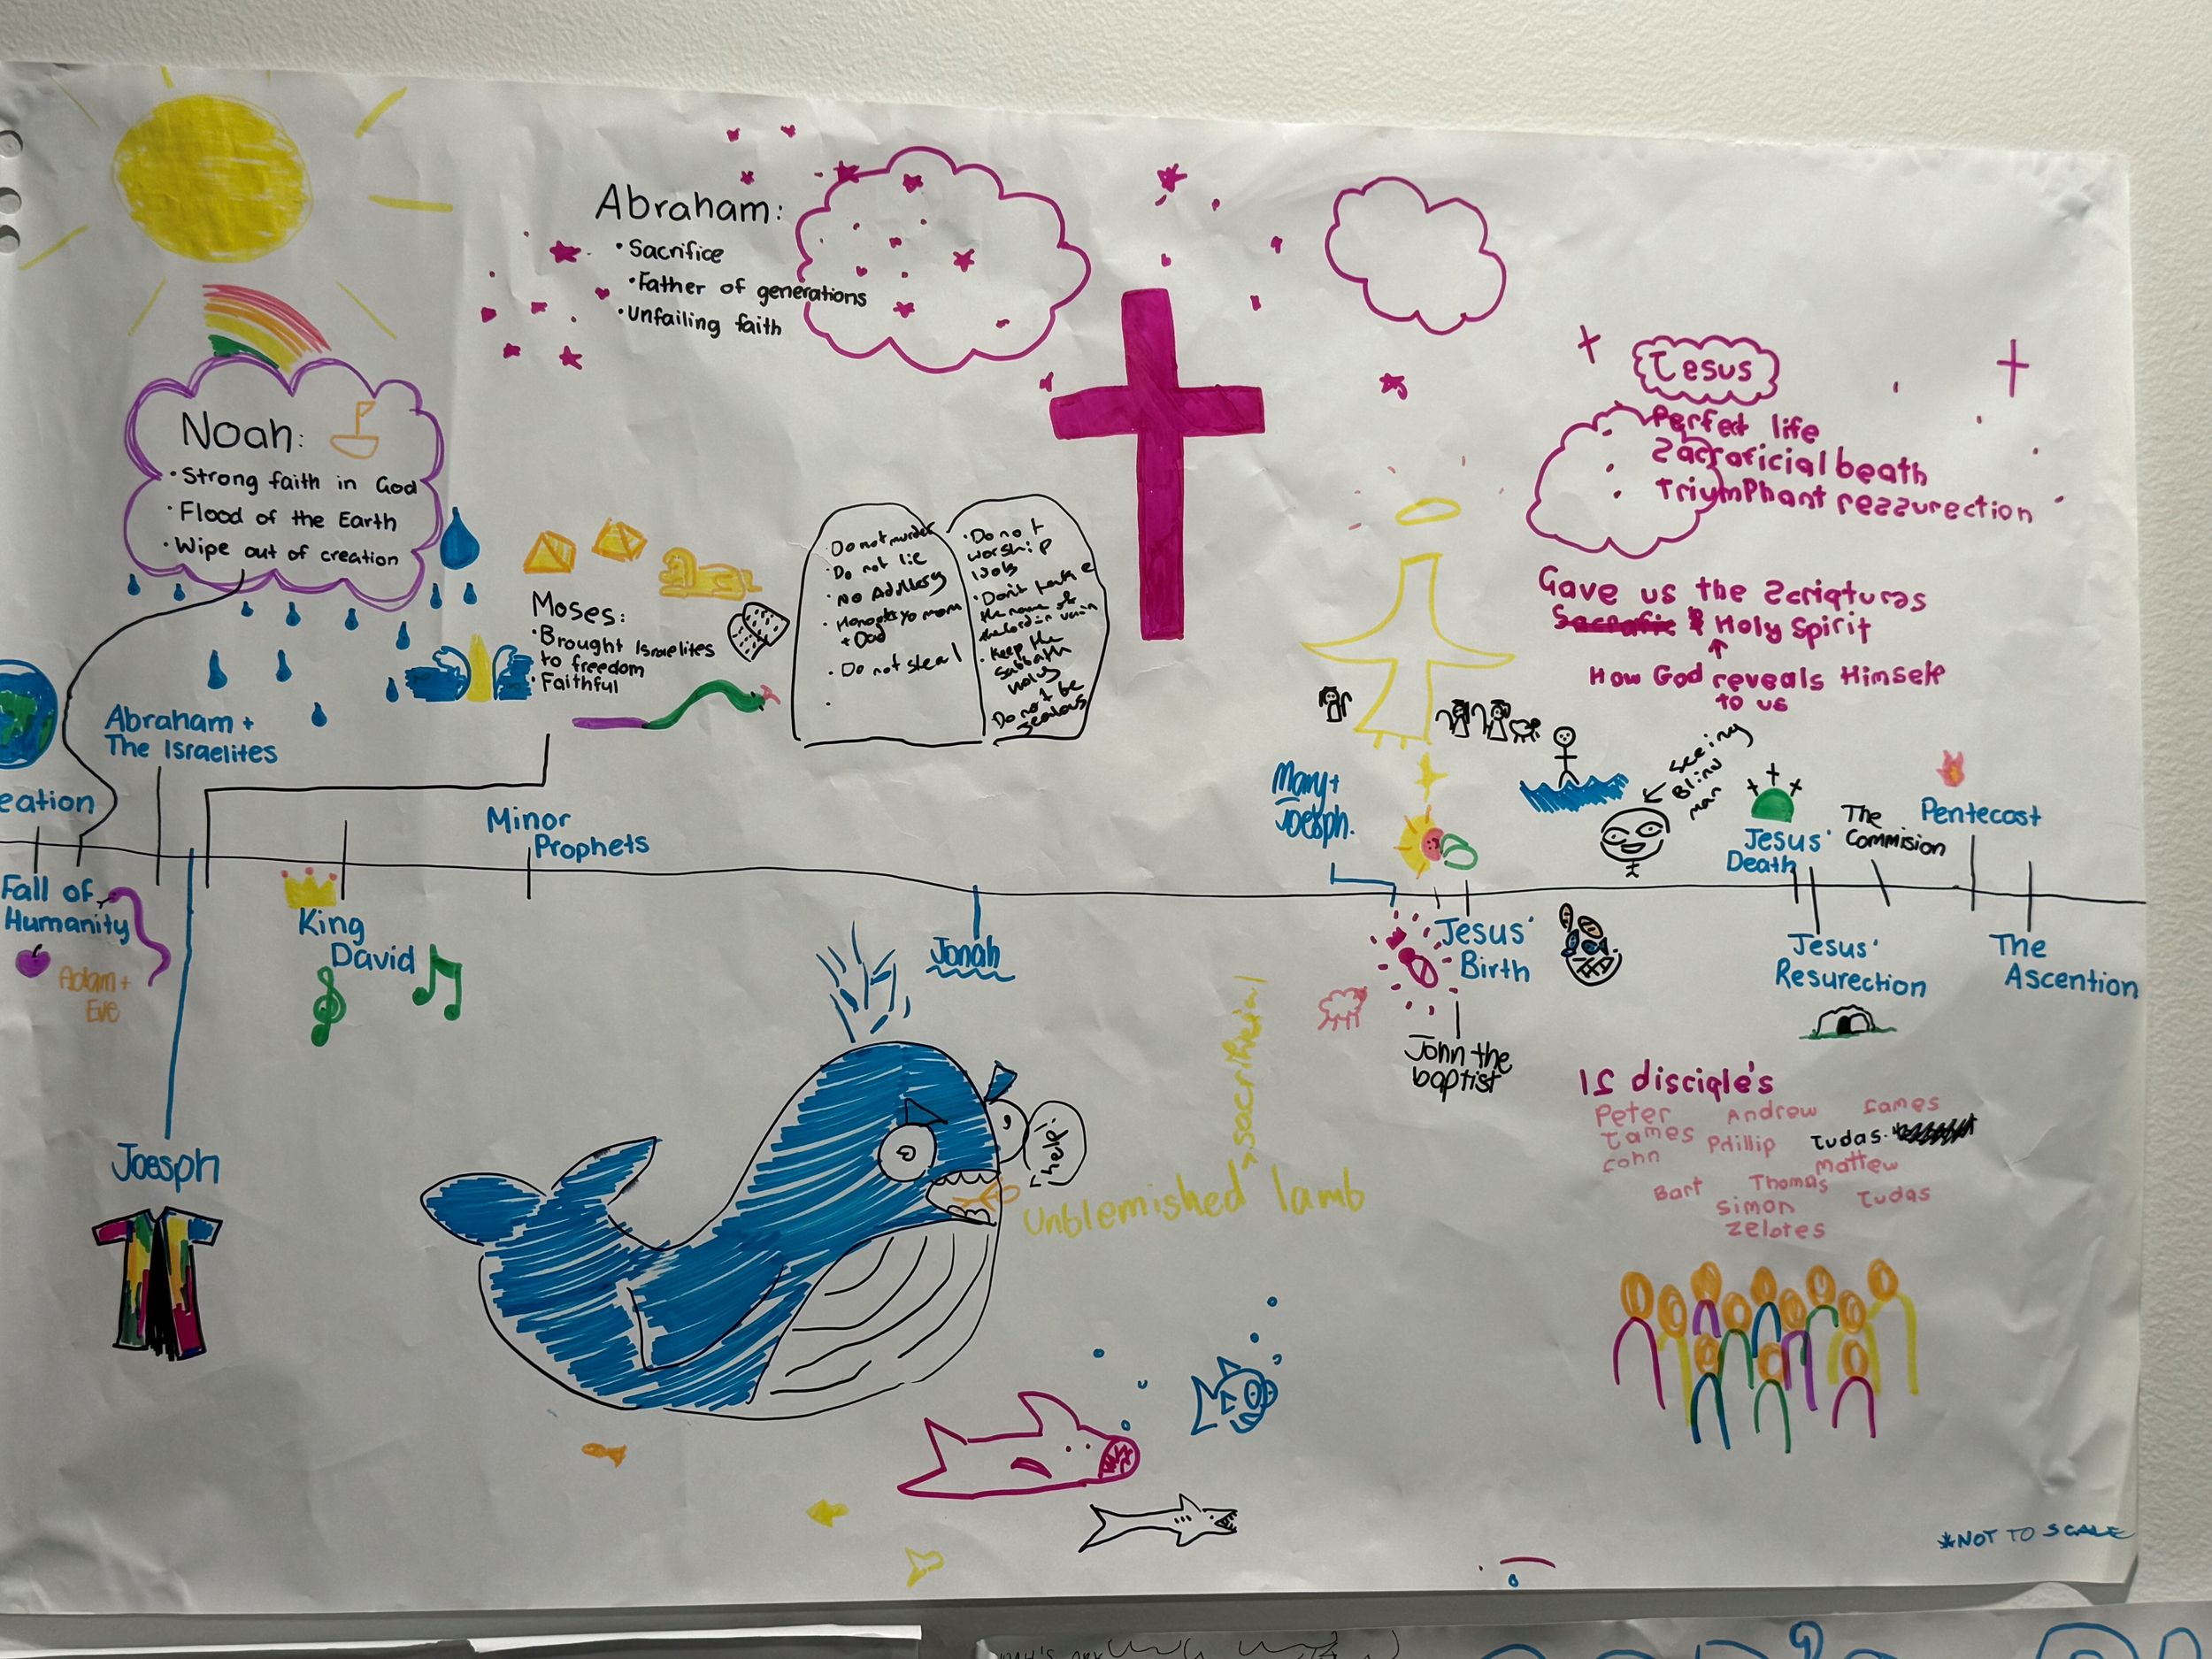 Abraham:
• Sacrifice
• Father of generations
• Unfailing faith
Noah:
• Strong faith in God
• Flood of the Earth
• Wipe out of creation
Moses:
• Brought Israelites
to freedom
• Faithful
• Do not murder
• Do not lie
• No Adultery
+ Dad
• Do not steal
•
• Do not
worship
idols
• Don't take
the name of
the lord in vain
• Keep the
Sabbath
Holy
Do not be
Jealous
Jesus
Perfect life
Sacraficial Death
Triumphant rezzurection
Gave us the Scriptures
& Holy Spirit
How God reveals Himself
to us
Abraham +
The Israelites
eation
Minor
Prophets
Mary +
Joesph.
seeing
Blind
man
Jesus'
Death
The
Commision
Pentecost
Fall of
Humanity
Adam +
Eve
King
David
Jonah
Jesus'
Birth
Jesus'
Resurection
The
Ascention
John the
baptist
Joesph
help!
sacrificial
Unblemished lamb
12 disciple's
Peter Andrew James
James Phillip Judas.
John Mattew
Bart Thomas Judas
Simon
Zelotes
*NOT TO SCALE